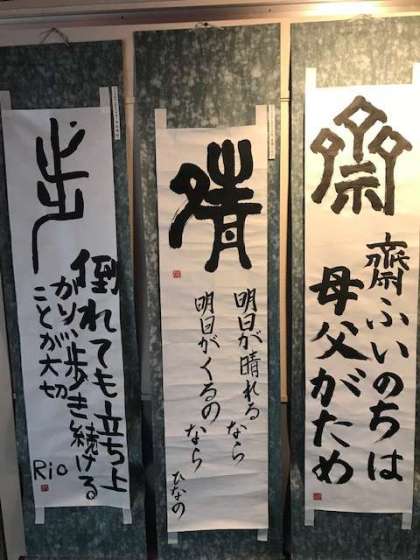 齋
齋ふいのちは
母父がため
晴
明日が晴れるなら
明日がくるのなら
ひなの
歩
倒れても立ち上
がり、歩き続ける
ことが大切
Rio